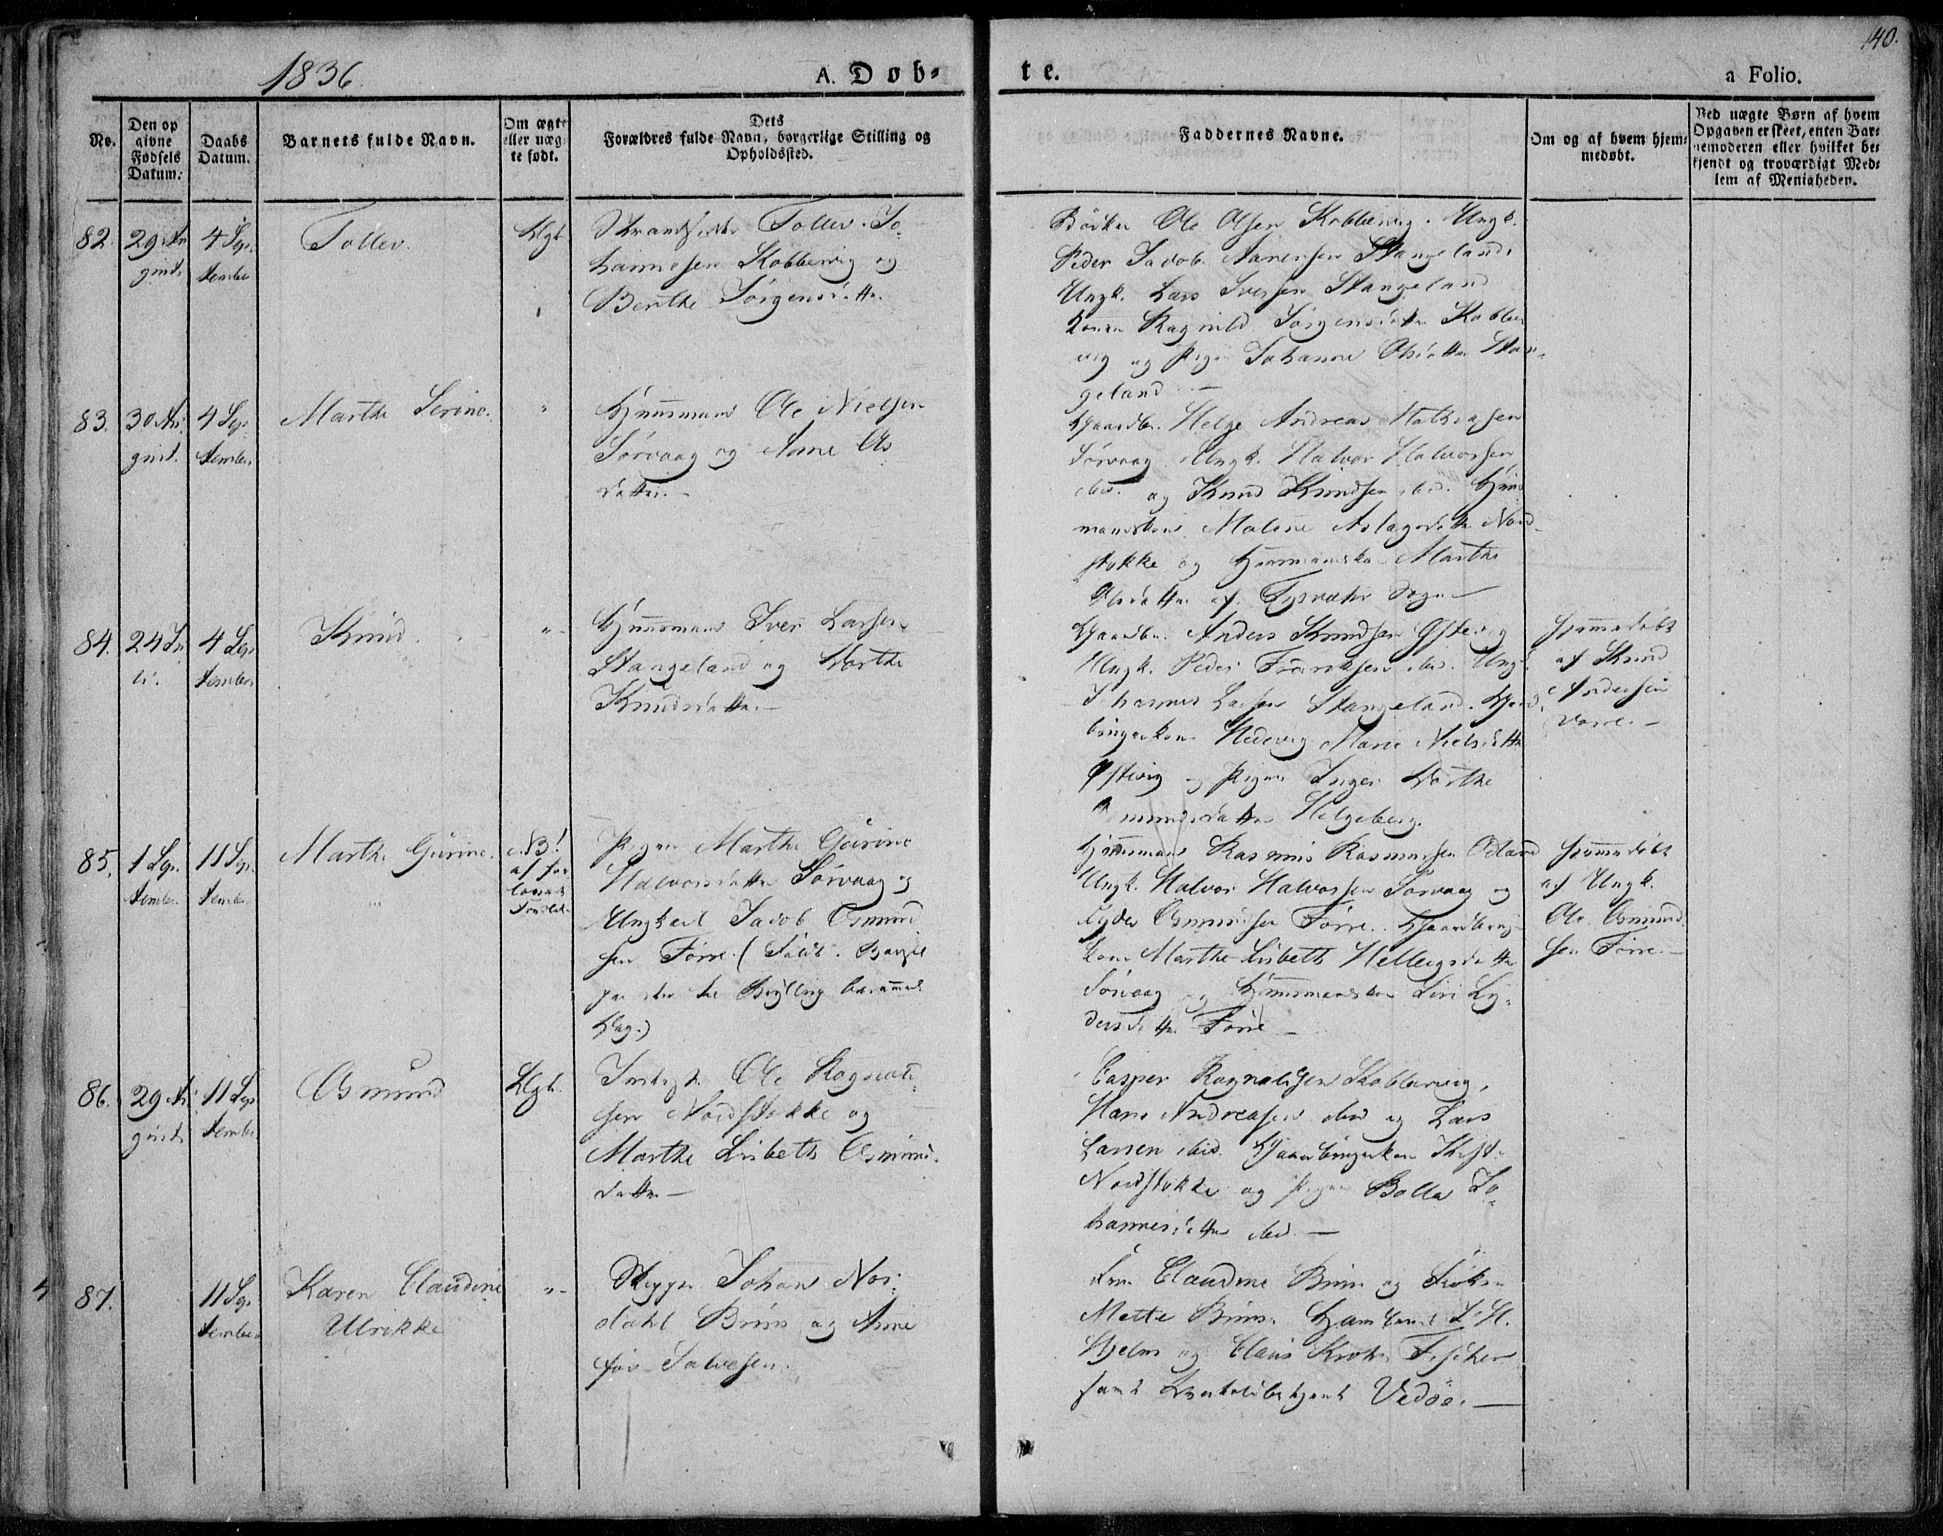 1836.
A. Døb-
te.
a Folio.
140.
No.
Den op
givne
Fødsels
Datum.
Daabs
Datum.
Barnets fulde Navn.
Om ægte
eller uæg-
te født.
Dets
Forældres fulde Navn, borgerlige Stilling og
Opholdssted.
Faddernes Navne.
Om og af hvem hjem-
medøbt.
Ved uægte Børn af hvem
Opgaven er skeet, enten Bar-
nemoderen eller hvilket be-
kjendt og troværdigt Med-
lem af Menigheden.
82.
29 Au
gust.
4 Sep
tember
Tollev.
Ægte
Tollev Jo-
hannesen Kobbervig og
Berthe Jørgensdatter
Ole Olsen Kobbervig. Ungk.
Peder Jacob Stangeland.
Ungk. Lars Iversen Stangeland
Konen Ragnild Jørgensdatter Kobber
vig og Pigen Johanne Olsdatter Stan-
geland.
83.
30 Au
gust.
4 Sep
tember.
Marthe Serine.
"
Huusmand Ole Nielsen
Sørvaag og Anne Ols
datter.
Gaardbr. Helge Andreas Mathiasen
Sørvaag. Ungk. Halvor Halvorsen
ibid. og Knud Knudsen ibid. Huus
mandskone Malene Aslagsdatter Nord-
stokke og Huusmandskone Marthe
Olsdatter af Tysvær Sogn
84.
24 Ju
li.
4 Sep
tember.
Knud.
"
Huusmand Iver Larsen
Stangeland og Marthe
Knudsdatter.
Gaardbr. Anders Knudsen Østevig
Ungk. Peder ibid. Ungk
Johannes Larsen Stangeland. Gaard-
brugerkone Hedevig Marie Nielsdatter
Østevig og Pigen Inger Marthe
Helgeberg.
Hjemmedøbt
af Knud
Andersen
85.
1 Sep
tember.
11 Sep
tember
Marthe Gurine.
NB!
af for
lovede
Forældre
Pigen Marthe Gurine
Halvorsdatter Sørvaag og
Ungkarl Jacob Osmund
sen Førre. (
til Bryllup
Dag.)
Huusmand Rasmus Rasmussen Odland
Ungk. Halvor Halvorsen Sørvaag og
Lyder Osmundsen Førre. Gaardbrug-
kone Marthe Lisbeth Helleigsdatter
Sørvaag og Huusmandskone Siri Ly-
dersdatter Førre
Hjemmedøbt
af Ungk.
Ole Osmund
sen Førre.
86.
29 Au
gust
11 Sep
tember
Osmund
Ægte
Ole Ragnald
sen Nordstokke og
Marthe Lisbeth Osmund-
datter
Casper Ragnaldsen Kobbervig,
Hans Andreasen ibid og Lars
Larsen ibid. Gaardbrugerkone
Nordstokke og Pigen Bolla Jo-
hannesdatter ibid.
87.
11 Sep
tember
Karen Claudine
Ulrikke
"
Skipper Johan Nor-
dahl Bruun og Anne
født Salvesen.
Fru Claudine Bruun og Frøken
Mette Bruun.
Hjelm og Claus Krohn Fischer
samt Vedøe.